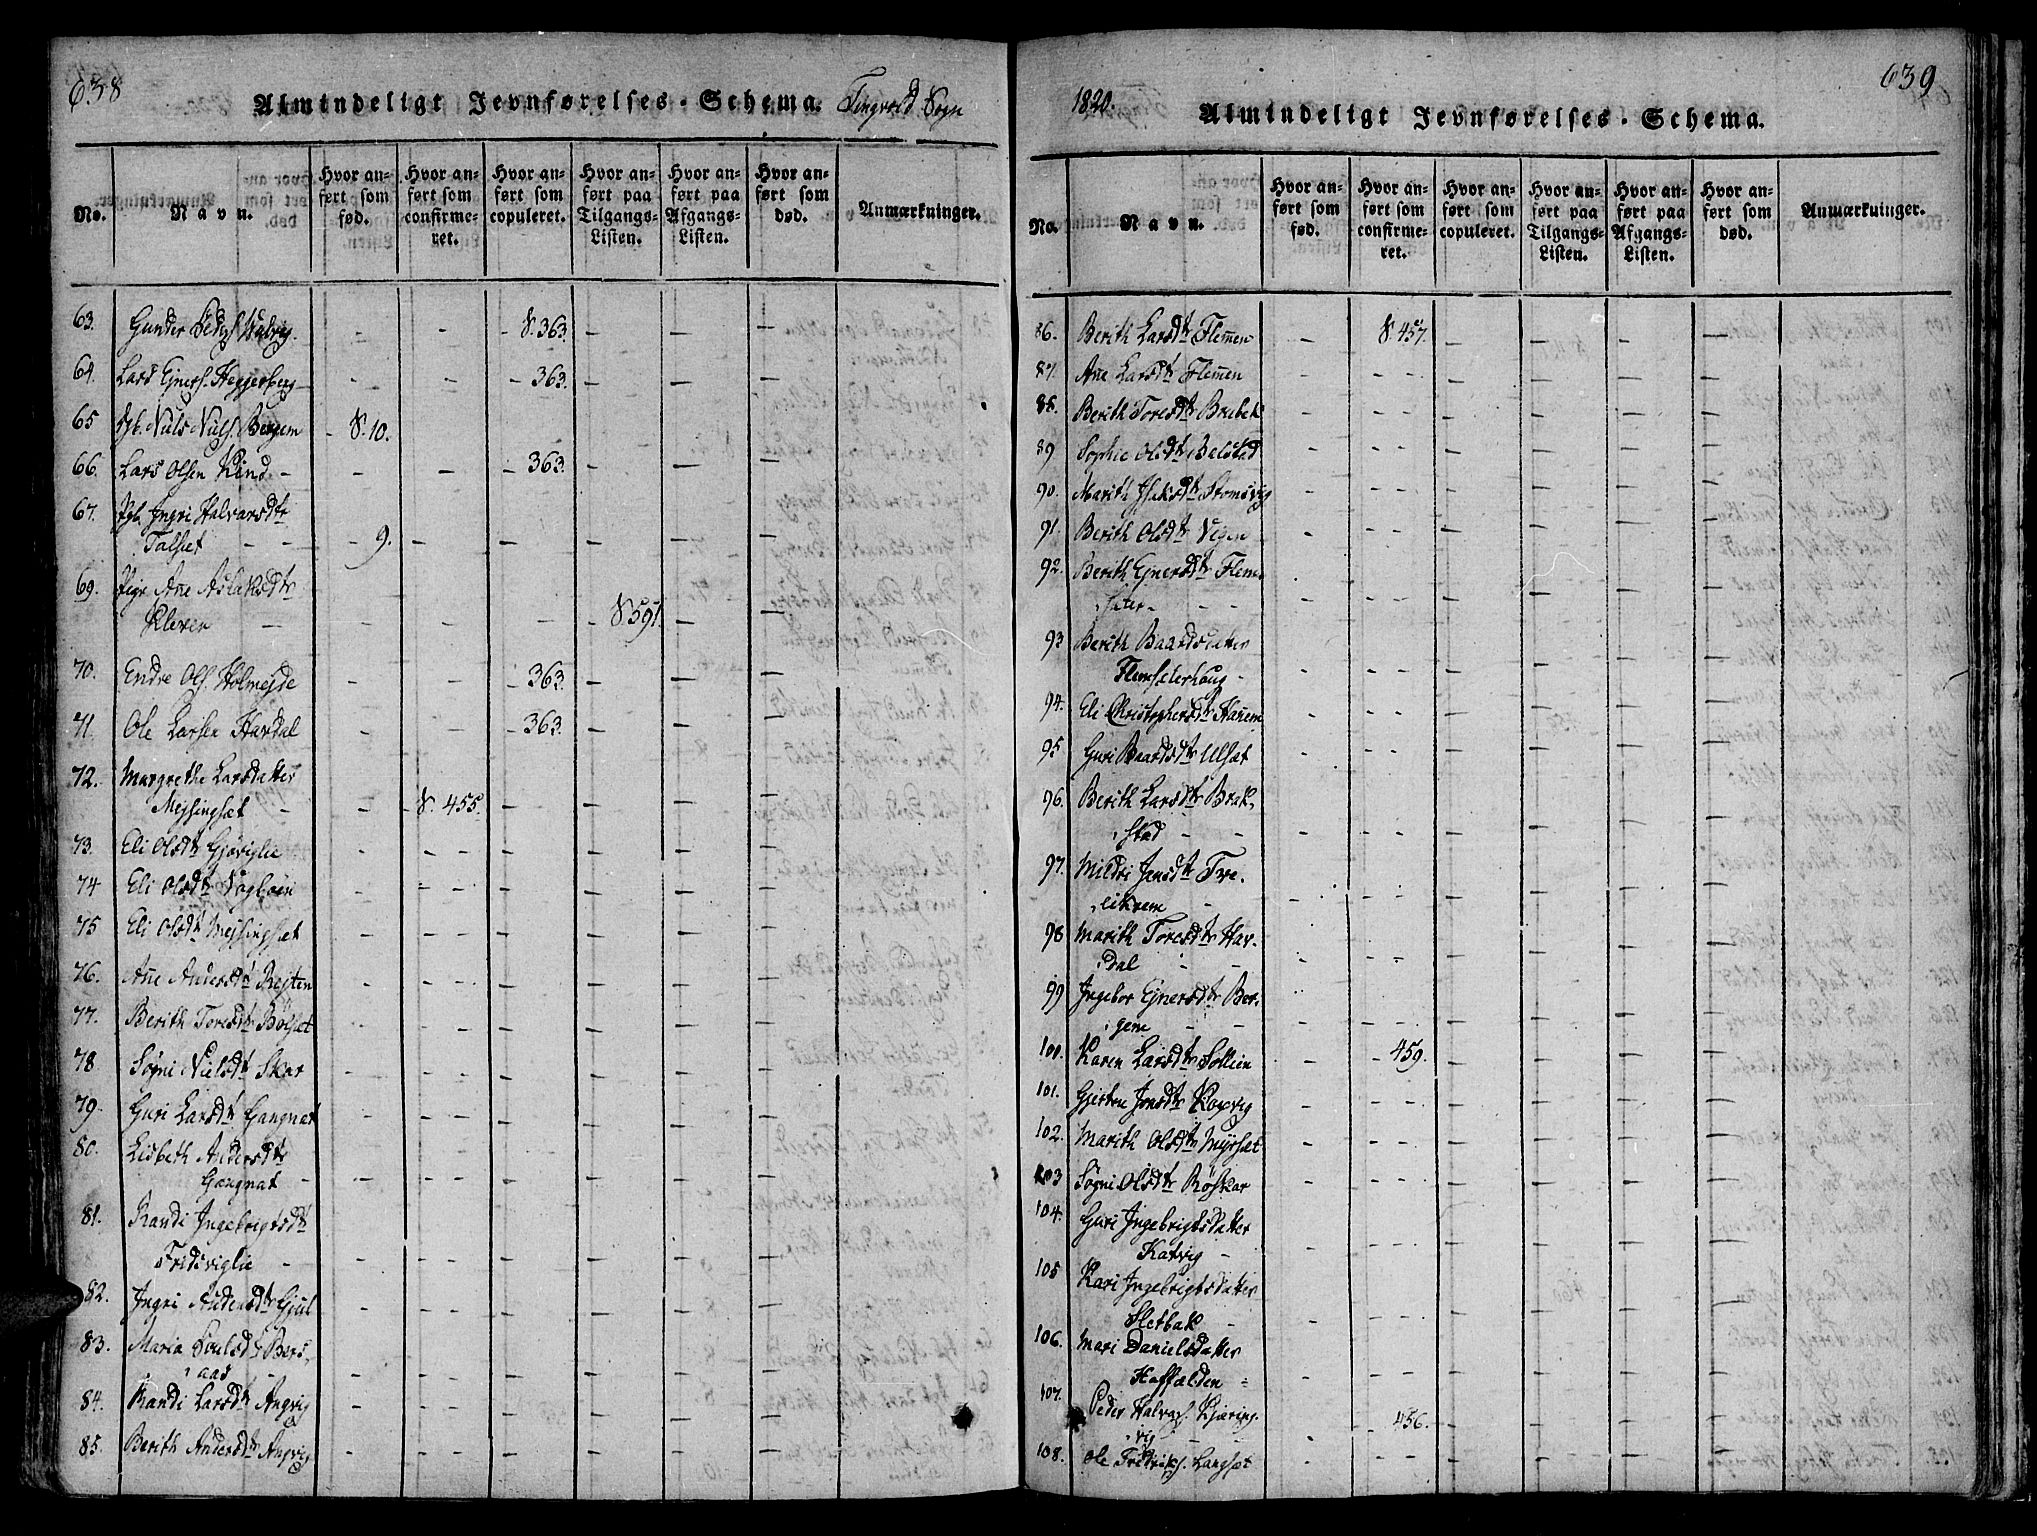 638
Almindeligt Jevnførelses-Schema. Tingvold Sogn
No. Navn. Hvor anført som fød. Hvor anført som confirmeret. Hvor anført som copuleret. Hvor anført paa Tilgangs-Listen. Hvor anført paa Afgangs-Listen. Hvor anført som død. Anmærkninger.
63. Gunder Peders. Halvig. - - S. 363. - - -
64. Lars Ejners. Heggerberg - - - 363. - - -
65 Pgb. Nils Nils. Bergem - S. 10.
66. Lars Olsen Rind - - - - 363. - - -
67. Pgb. Ingri Halvarsdtr
Talset - - - 9. - - - - -
69. Pige Ane Aslaksdtr
Kleven - - - - S. 591. - -
70. Endre Ols. Holmejde - - - 363. - - -
71. Ole Larsen Hardal - - - 363. - - -
72. Margrethe Larsdatter
Mejsingsæt - - - S. 455. - - - -
73. Eli Olsdtr Gjøviglie - - - - - - -
74 Eli Olsdtr Vagbøen - - - - - - -
75 Eli Olsdtr Mejsingsæt - - - - - - -
76. Ane Andersdtr Rejten - - - - - - -
77. Berith Toresdtr Bölsæt - - - - - - -
78 Søgni Nielsdtr Skar - - - - - - -
79. Guri Larsdtr Gangnat - - - - - - -
80. Lisbeth Andersdtr
Gangnat - - - - - - - -
81. Randi Ingebrigtsdtr
Fridsviglie - - - - - - - -
82. Ingri Andersdtr Gjul - - - - - - -
83. Maria Poulsdtr Bers-
aas - - - - - - - -
84. Randi Larsdtr Angvig - - - - - - -
85. Berith Andersdtr Angvig - - - - - - -
1820. Almindeligt Jevnførelses-Schema. 639
No. Navn. Hvor anført som fød. Hvor anført som confirmeret. Hvor anført som copuleret. Hvor anført paa Tilgangs-Listen. Hvor anført paa Afgangs-Listen. Hvor anført som død. Anmærkninger.
86. Berith Larsdtr Flemen - S. 457. - - - -
87. Ane Larsdtr Flemen - - - - - - -
88. Berith Toresdtr Brubek - - - - - - -
89 Sophie Olsdtr Belstad - - - - - - -
90. Marith Isaksdtr Stomsvig - - - - - - -
91. Berith Olsdtr Vegen - - - - - - -
92. Berith Ejnersdtr Flem-
seter - - - - - - - - -
93 Berith Baardsdatter
Flemseterhoug - - - - - - - -
94. Eli Christophersdtr Hanem - - - - - - -
95 Guri Baardsdtr Ulsæt - - - - - - -
96. Berith Larsdtr Brak-
stad - - - - - - - - -
97. Mildri Jansdtr Tve-
eikrem - - - - - - - -
98 Marith Toresdtr Har-
dal - - - - - - - - -
99 Ingebor Ejnersdtr Ber-
gem - - - - - - - - -
100. Karen Larsdtr Sollien - - 459. - - - -
101. Gjerten Jonsdtr Koxvig - - - - - - -
102. Marith Olsdtr Myrsæt - - - - - - -
103 Søgni Olsdtr Röskar - - - - - - -
104. Guri Ingebrigtsdatter
Katvig - - - - - - - -
105 Kari Ingebrigtsdatter
Sletbak - - - - - - - -
106. Mari Danielsdatter
Haffælden - - - - - - - -
107. Peder Halvars. Kjæring-
vig - - - - 456. - - - -
108. Ole Fridriks. Langsæt - - - - - - -